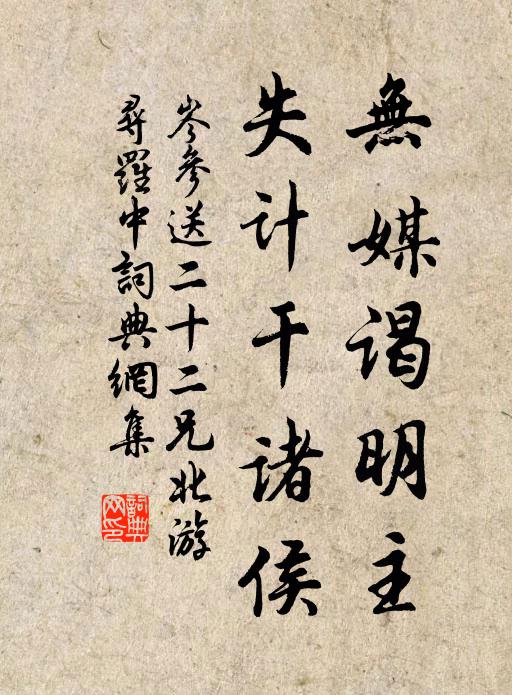 無媒謁明主
失计干诸侯
岑參送二十二兄北游
尋羅中詞典網集
詞典网印